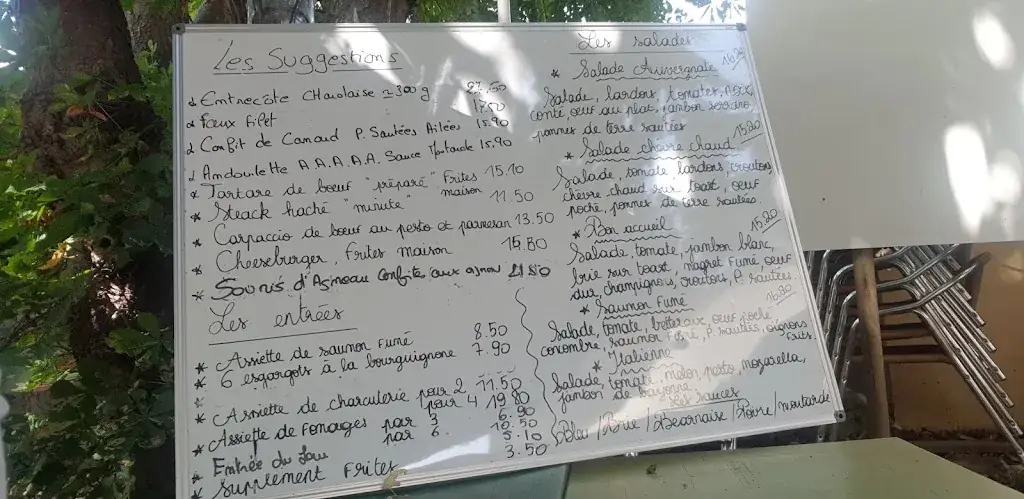 Les Suggestions
Entrecôte Charolaise ≃ 300 g 27.50
Faux Filet 17.50
Confit de Canard P. Sautées Ailées 15.90
Andoulette A.A.A.A.A. Sauce Moutarde 15.90
Tartare de boeuf "préparé" Frites maison 15.10
Steack haché "minute" 11.50
Carpaccio de boeuf au pesto et parmesan 13.50
Cheeseburger, Frites maison
Souris d'Agneau Confite aux
Les entrées
Assiette de saumon Fumé 8.50
6 esgargots à la bourguignone 7.90
Assiette de charcuterie pour 2 11.50
pour 4 19.80
Assiette de Fromages par 3 6.90
par 6 10.50
Entrée du Jour 5.10
Supplement Frites 3.50
Les salades
Salade Auvergnate
Salade, lardons, tomates, noix,
conté, oeuf au plat, jambon serrano,
pommes de terre sautées
Salade chèvre chaud 15.20
Salade, tomate, lardons, croutons,
chèvre chaud sur toast, oeuf
poché, pommes de terre sautées.
Bon accueil 15.20
Salade, tomate, jambon blanc,
brie sur toast, magret Fumé, oeuf
dur, champignons, croutons, P. sautées
Saumon Fumé 16.20
Salade, tomate, betterave, oeuf poché,
concombre, saumon Fumé, P. sautées, oignons
Frits.
Italienne
Salade, tomate, melon, pesto, mozzarella,
jambon de bayonne.
Les sauces
Bleu / Brie / Béarnaise / Poivre / moutarde